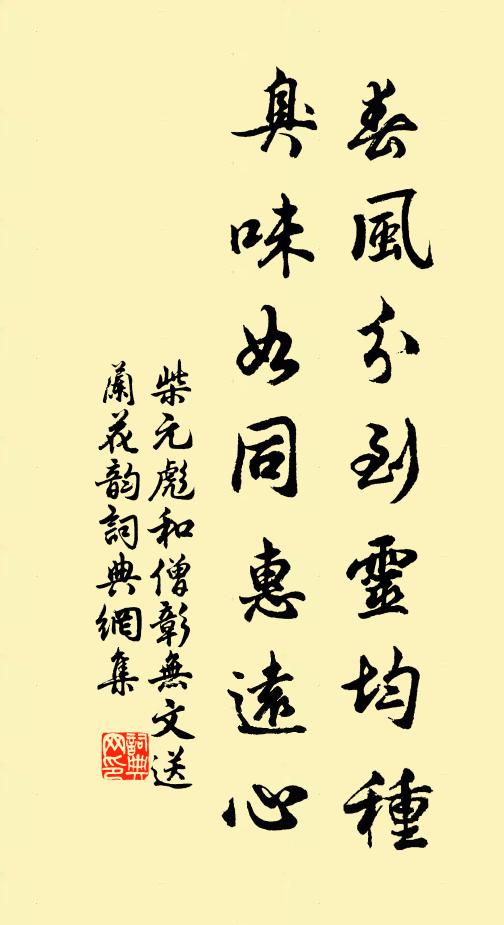 春風分到靈均種
臭味如同惠遠心
柴元彪和僧彰無文送
蘭花韵詞典網集
詞典网印